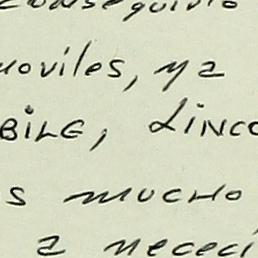 conseguido
moviles, ya
BILE, LINCO
s mucho
a nececi